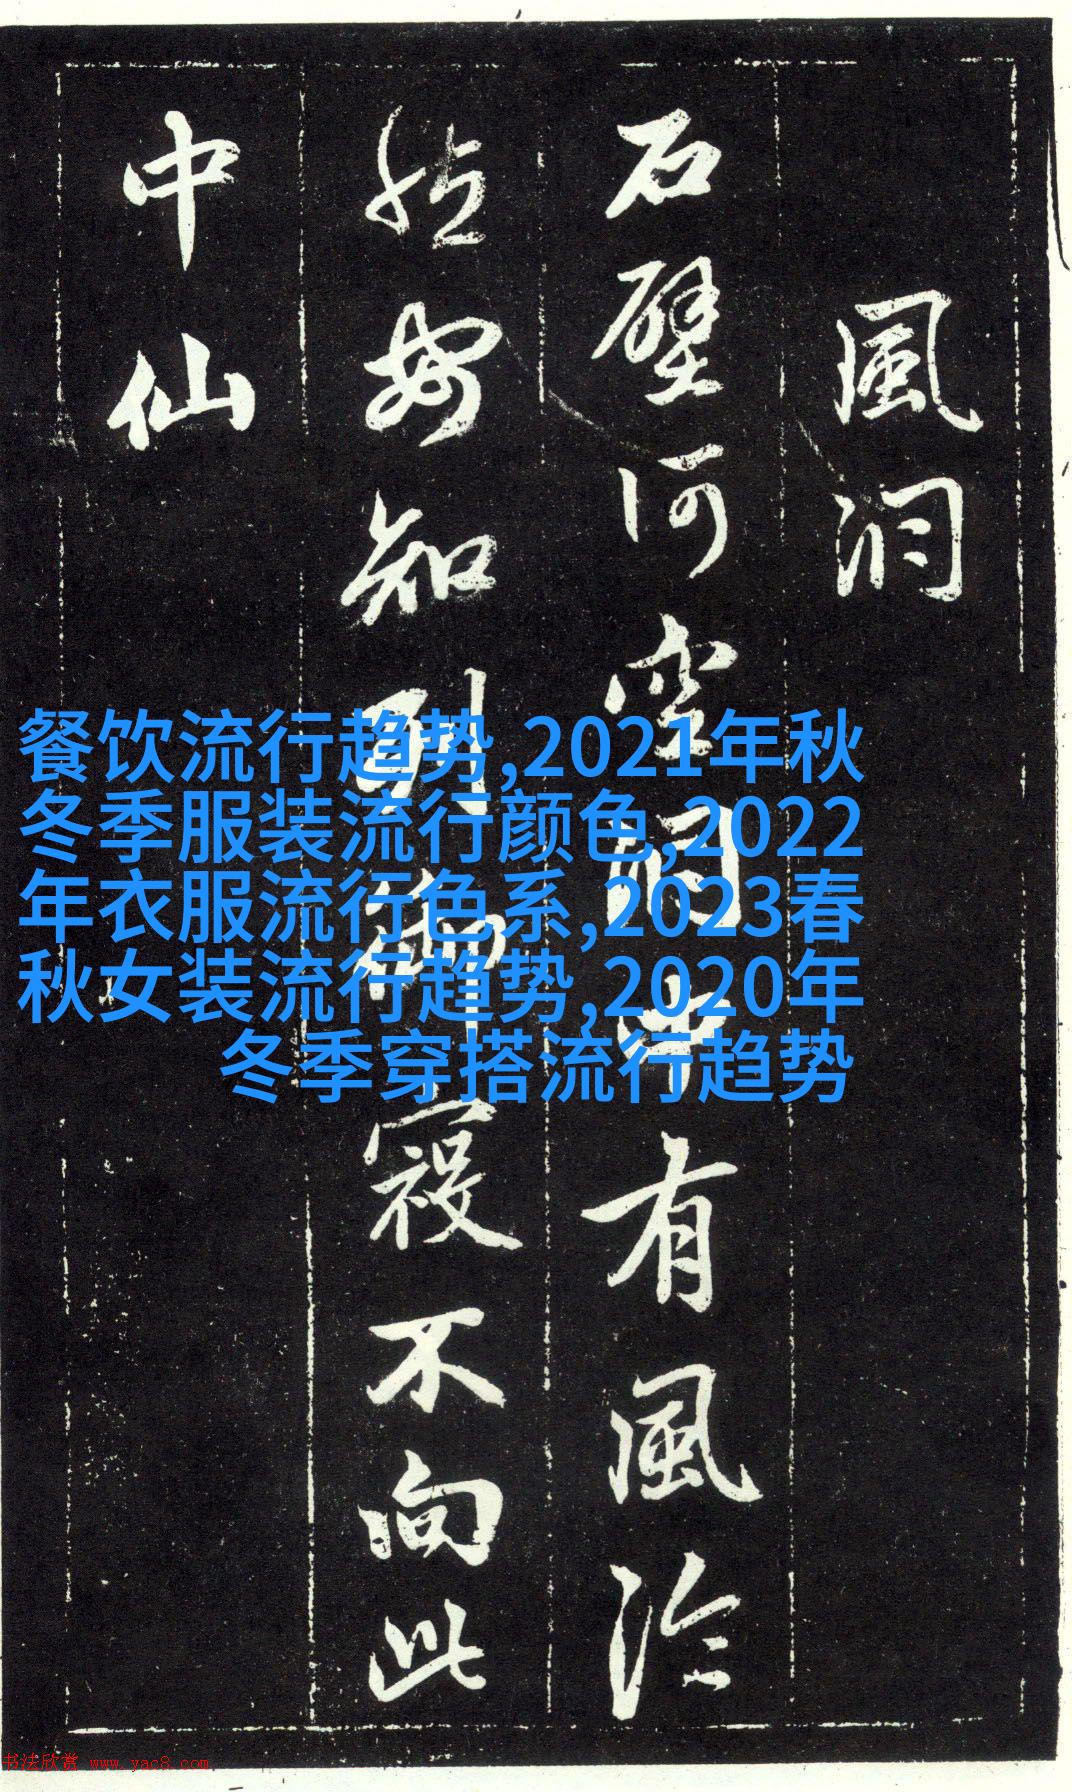 風洞
石壁何空洞中有風泠
然安知列禦寇不向此
中仙
餐饮流行趋势,2021年秋
冬季服装流行颜色,2022
年衣服流行色系,2023春
秋女装流行趋势,2020年
冬季穿搭流行趋势
书法欣赏 www.yac8.com